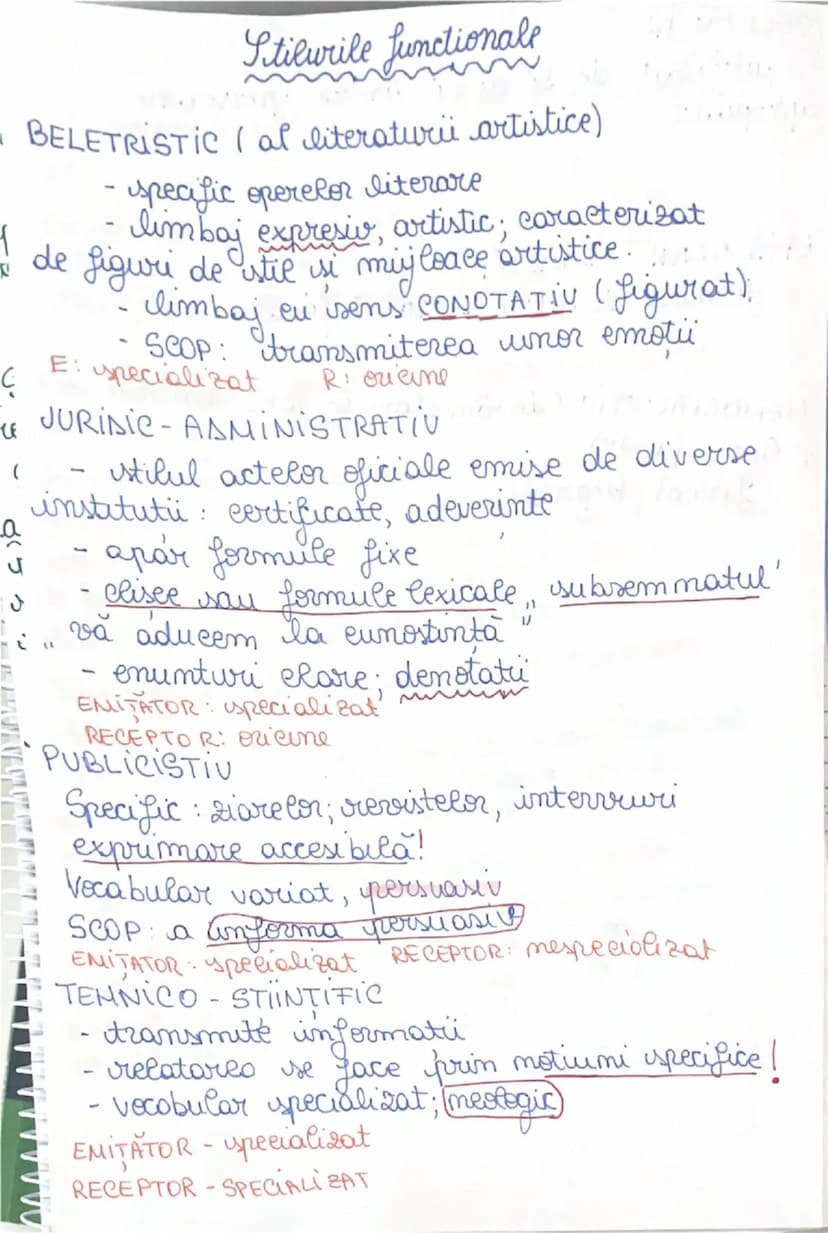 Stilurile funcționale
BELETRISTIC (al literaturii artistice)
- specific operelor literare
- limbaj expresiv, artistic; caracterizat
de figuri de stil și mijloace artistice.
- limbaj cu sens CONOTATIV (figurat).
- SCOP: transmiterea unor emoții
E: specializat R: oricine
JURIDIC-ADMINISTRATIV
- stilul actelor oficiale emise de diverse
institutii: certificate, adeverințe
- apar formule fixe
- clisee sau formule lexicale „subsemmatul”
„vă aducem la cunostință”
- enunturi clare; denotatii
EMIȚĂTOR: specializat
RECEPTOR: oricine
PUBLICISTIV
Specific: ziarelor; revistelor, interviuri
exprimare accesibilă!
Vocabular variat, persuasiv
SCOP: a informa persuasiv
EMIȚATOR: specializat RECEPTOR: nespecializat
TEHNICO - STIINȚIFIC
- transmite informatii
- relatarea se face prin notiuni specifice!
- vocabular specializat; neologic
EMIȚĂTOR - specializat
RECEPTOR - SPECIALIZAT